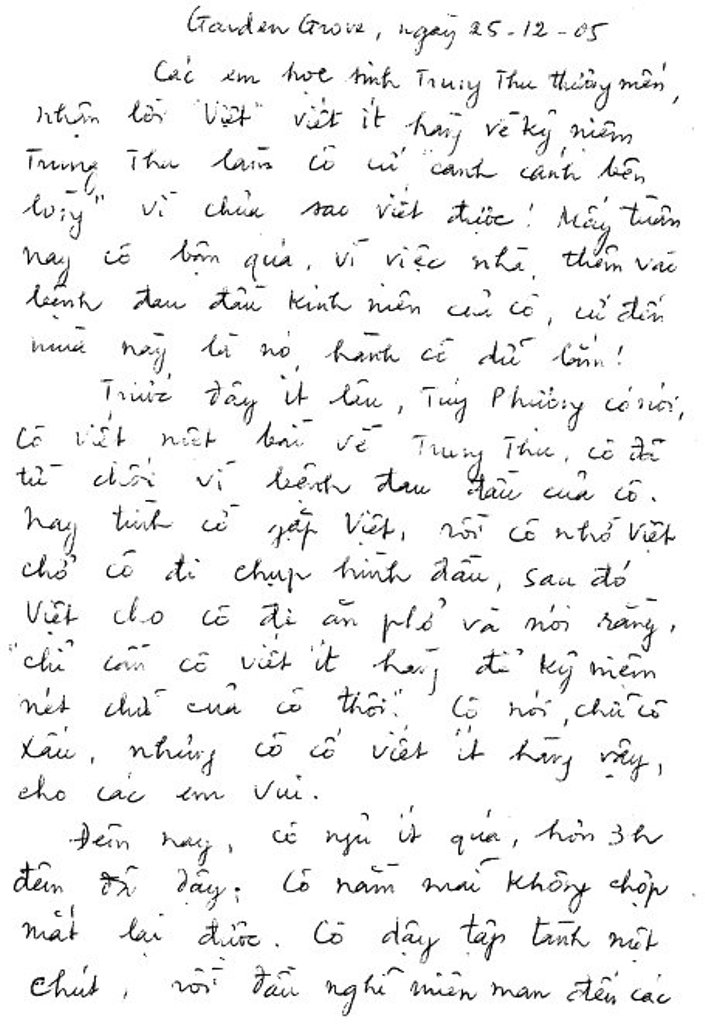 Garden Grove, ngày 25-12-05
Các em học sinh Trung Thu thương mến,
nhận lời "Việt" viết ít hàng về kỷ niệm
Trung Thu làm cô cứ "canh cánh bên
lòng" vì chưa sao viết được! Mấy tuần
nay cô bận quá, vì việc nhà, thêm vào
bệnh đau đầu kinh niên của cô, cứ đến
mùa này là nó hành cô dữ lắm!
Trước đây ít lâu, Túy Phương có nói,
Cô viết một bài về Trung Thu, cô đã
từ chối vì bệnh đau đầu của cô.
Nay tình cờ gặp Việt, rồi cô nhờ Việt
chở cô đi chụp hình đầu, sau đó
Việt cho cô đi ăn phở và nói rằng,
"chỉ cần cô viết ít hàng để kỷ niệm
nét chữ của cô thôi." Cô nói, chữ cô
xấu, nhưng cô cố viết ít hàng vậy,
cho các em vui.
Đêm nay, cô ngủ ít quá, hơn 3h
đêm đã dậy; Cô nằm mãi không chợp
mắt lại được. Cô dậy tập tành một
chút, rồi đầu nghĩ miên man đến các